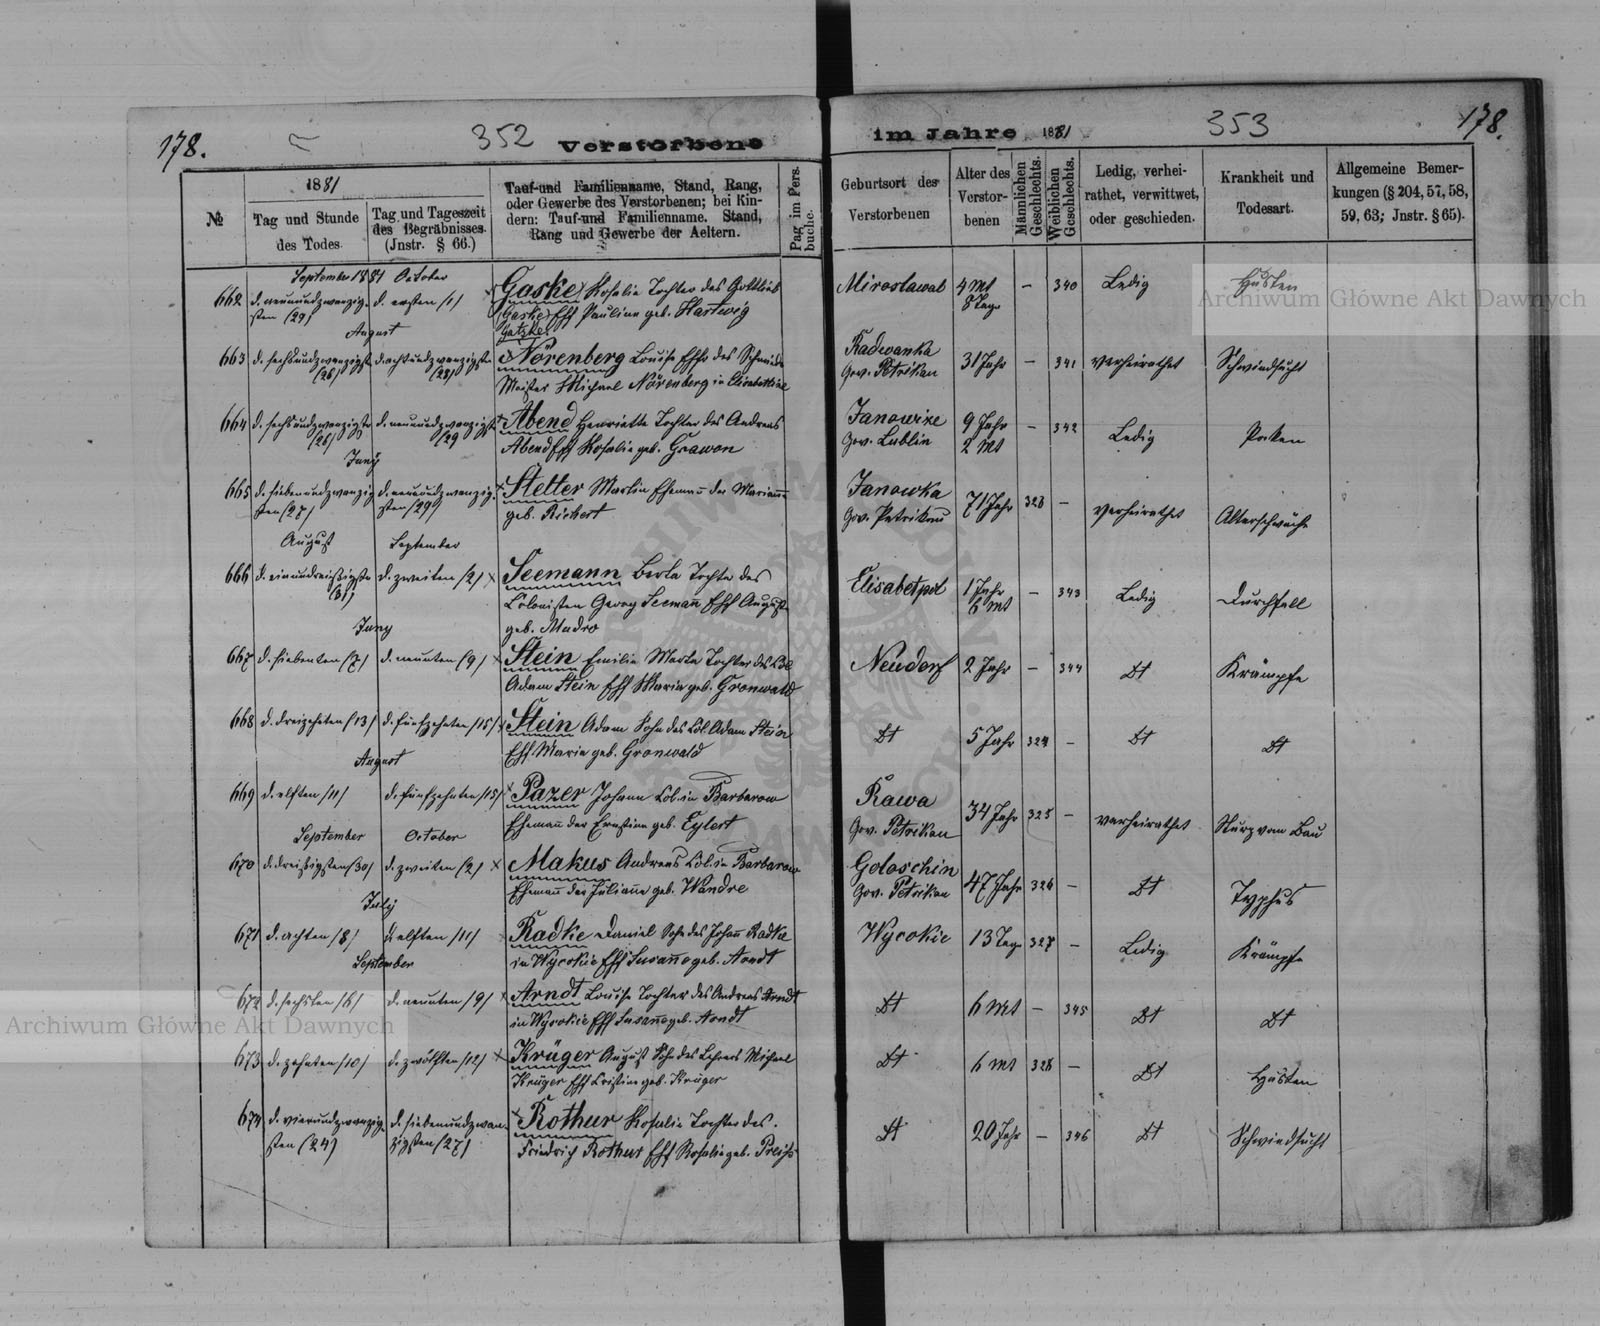 178.
352
Verstorbene
im Jahre 1881
353
178.
№
1881
Tag und Stunde
des Todes.
Tag und Tageszeit
des Begräbnisses.
(Jnstr. § 66.)
Tauf-und Familienname, Stand, Rang,
oder Gewerbe des Verstorbenen; bei Kin-
dern: Tauf-und Familienname. Stand,
Rang und Gewerbe der Aeltern.
Pag im Pers.
buche.
Geburtsort des
Verstorbenen
Alter des
Verstor-
benen
Männlichen
Geschlechts.
Weiblichen
Geschlechts.
Ledig, verhei-
rathet, verwittwet,
oder geschieden.
Krankheit und
Todesart.
Allgemeine Bemer-
kungen (§ 204, 57, 58,
59, 63; Jnstr. § 65).
September 1881 October
662 d. neunundzwanzig- d. ersten /1/ Gaske, Rosalie Tochter des Gottlieb Miroslawal 4 Mt – 340 Ledig Husten
sten (29) (Gaske) Eff Pauline geb. Hartwig 8 Tage
August Gatzke
663 d. sechsundzwanzigste d. achtundzwanzigste Nörenberg Louise Effr des Schneider Radwanka 31 Jahr – 341 verheirathet Schwindsucht
(26) (28) Meister Michael Nörenberg in Gov. Petrikau
664 d. sechsundzwanzigste d. neunundzwanzigste Abend Henriette Tochter des Andreas Janowize 9 Jahr – 342 Ledig Poken
(26) (29 Abend Eff Rosalie geb. Grawon Gov. Lublin 2 Mt
Juny
665 d. siebenundzwanzig d. neunundzwanzig- Stelter Martin Ehemañ der Marianne Janowka 71 Jahr 323 – verheirathet Altersschwäche
sten (27) sten (29) geb. Rickert Gov. Petrikau
August September
666 d. einunddreißigste d. zweiten /2/ Seemann Berta Tochter des Elisabetpol 1 Jahr – 343 Ledig Durchfall
(31) Colonisten Georg Seemañ Eff August 6 Mt
Juny geb. Madro
667 d. siebenten (7) d. neunten (9) Stein Emilie Marta Tochter des Col Neudorf 2 Jahr – 344 Dt Krämpfe
Adam Stein Eff Maria geb. Gronwald
668 d. dreizehnten (13) d. fünfzehnten /15/ Stein Adam Sohn des Col. Adam Stein Dt 5 Jahr 324 – Dt Dt
August Eff Maria geb. Gronwald
669 d. elften /11/ d. fünfzehnten /15/ Pazer Johann Col. in Barbarow Rawa 34 Jahr 325 – verheirathet Sturz vom Bau
Ehemañ der Ernstine geb. Eylert Gov. Petrikau
September October
670 d. dreißigsten (30) d. zweiten (2) Makus Andreas Col. in Barbarow Goloschin 47 Jahr 326 – Dt Typhus
Ehemañ der Juliañe geb. Wandre Gov. Petrikau
July
671 d. achten /8/ d. elften /11/ Radke Daniel Sohn des Johañ Radke Wycokie 13 Tage 327 – Ledig Krämpfe
September in Wycokie Eff Susañe geb. Arndt
672 d. sechsten /6/ d. neunten /9/ Arndt Louise Tochter des Andreas Arndt Dt 6 Mt – 345 Dt Dt
in Wycokie Eff Susañe geb. Arndt
673 d. zehnten /10/ d. zwölften /12/ Krüger August Sohn des Lehrers Michael Dt 6 Mt 328 – Dt Husten
Krüger Eff Cristine geb. Krüger
674 d. vierundzwanzig- d. siebenundzwan- Rothur Rosalie Tochter des Dt 20 Jahr – 346 Dt Schwindsucht
sten (24) zigsten (27) Friedrich Rothur Eff Rosalie geb. Preiss
Archiwum Główne Akt Dawnych
Archiwum Główne Akt Dawnych